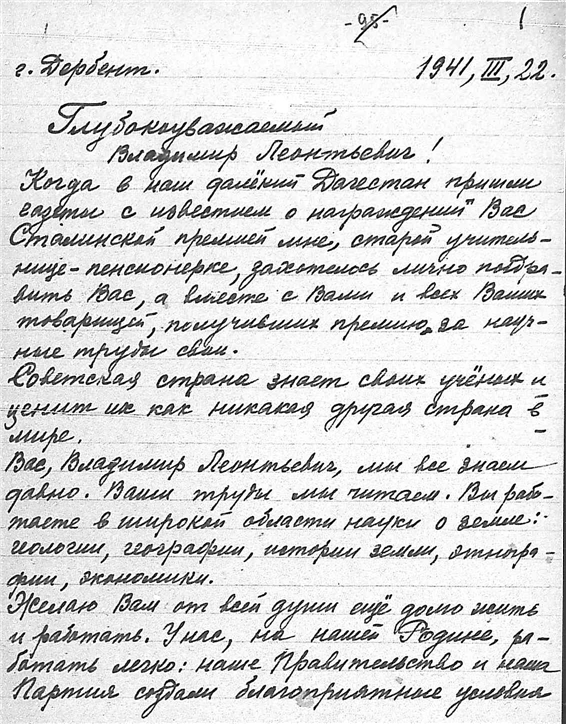 -98-
г. Дербент. 1941, III, 22.
Глубокоуважаемый
Владимир Леонтьевич!
Когда в наш далёкий Дагестан пришли
газеты с известием о награждений Вас
Сталинской премией мне, старой учитель-
нице-пенсионерке, захотелось лично поздра-
вить Вас, а вместе с Вами и всех Ваших
товарищей, получивших премию за науч-
ные труды свои.
Советская страна знает своих учёных и
ценит их как никакая другая страна в
мире.
Вас, Владимир Леонтьевич, мы все знаем
давно. Ваши труды мы читаем. Вы рабо-
таете в широкой области науки о земле:
геологии, географии, истории земли, этногра-
фии, экономики.
Желаю Вам от всей души ещё долго жить
и работать. У нас, на нашей Родине, ра-
ботать легко: наше Правительство и наша
Партия создали благоприятные условия